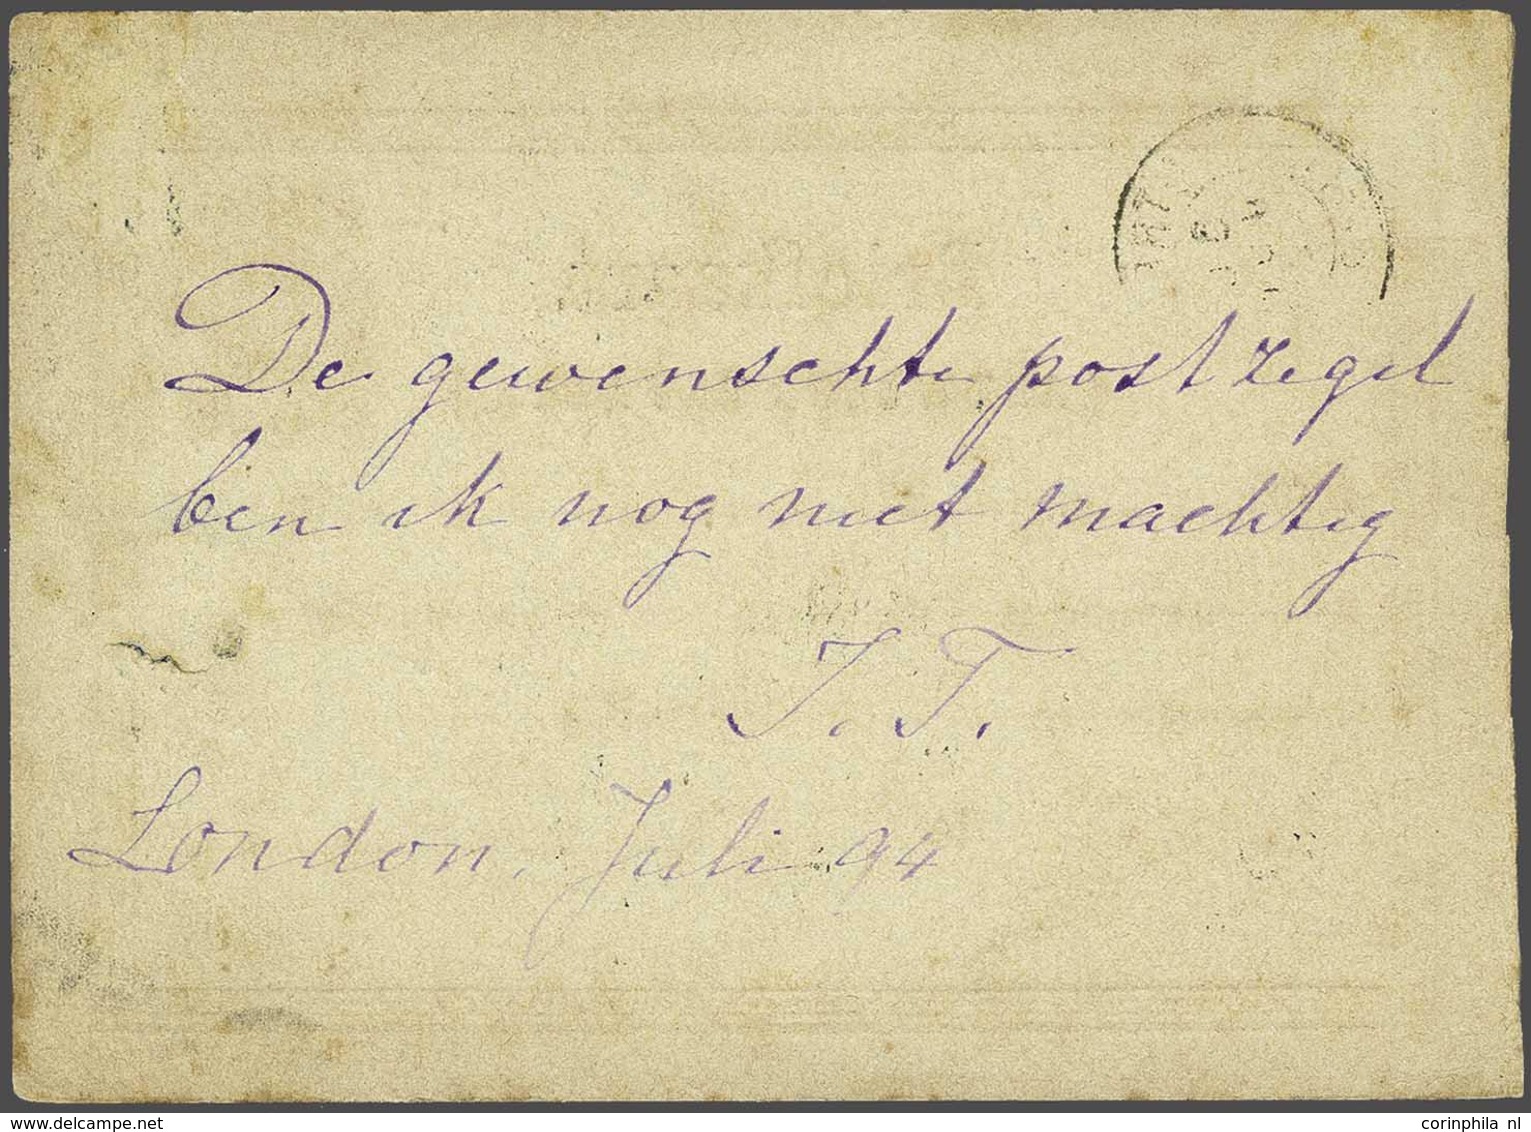 De gewenschte postzegel
ben ik nog niet machtig
J. T.
London, Juli 94
delcampe.net
corinphila nl